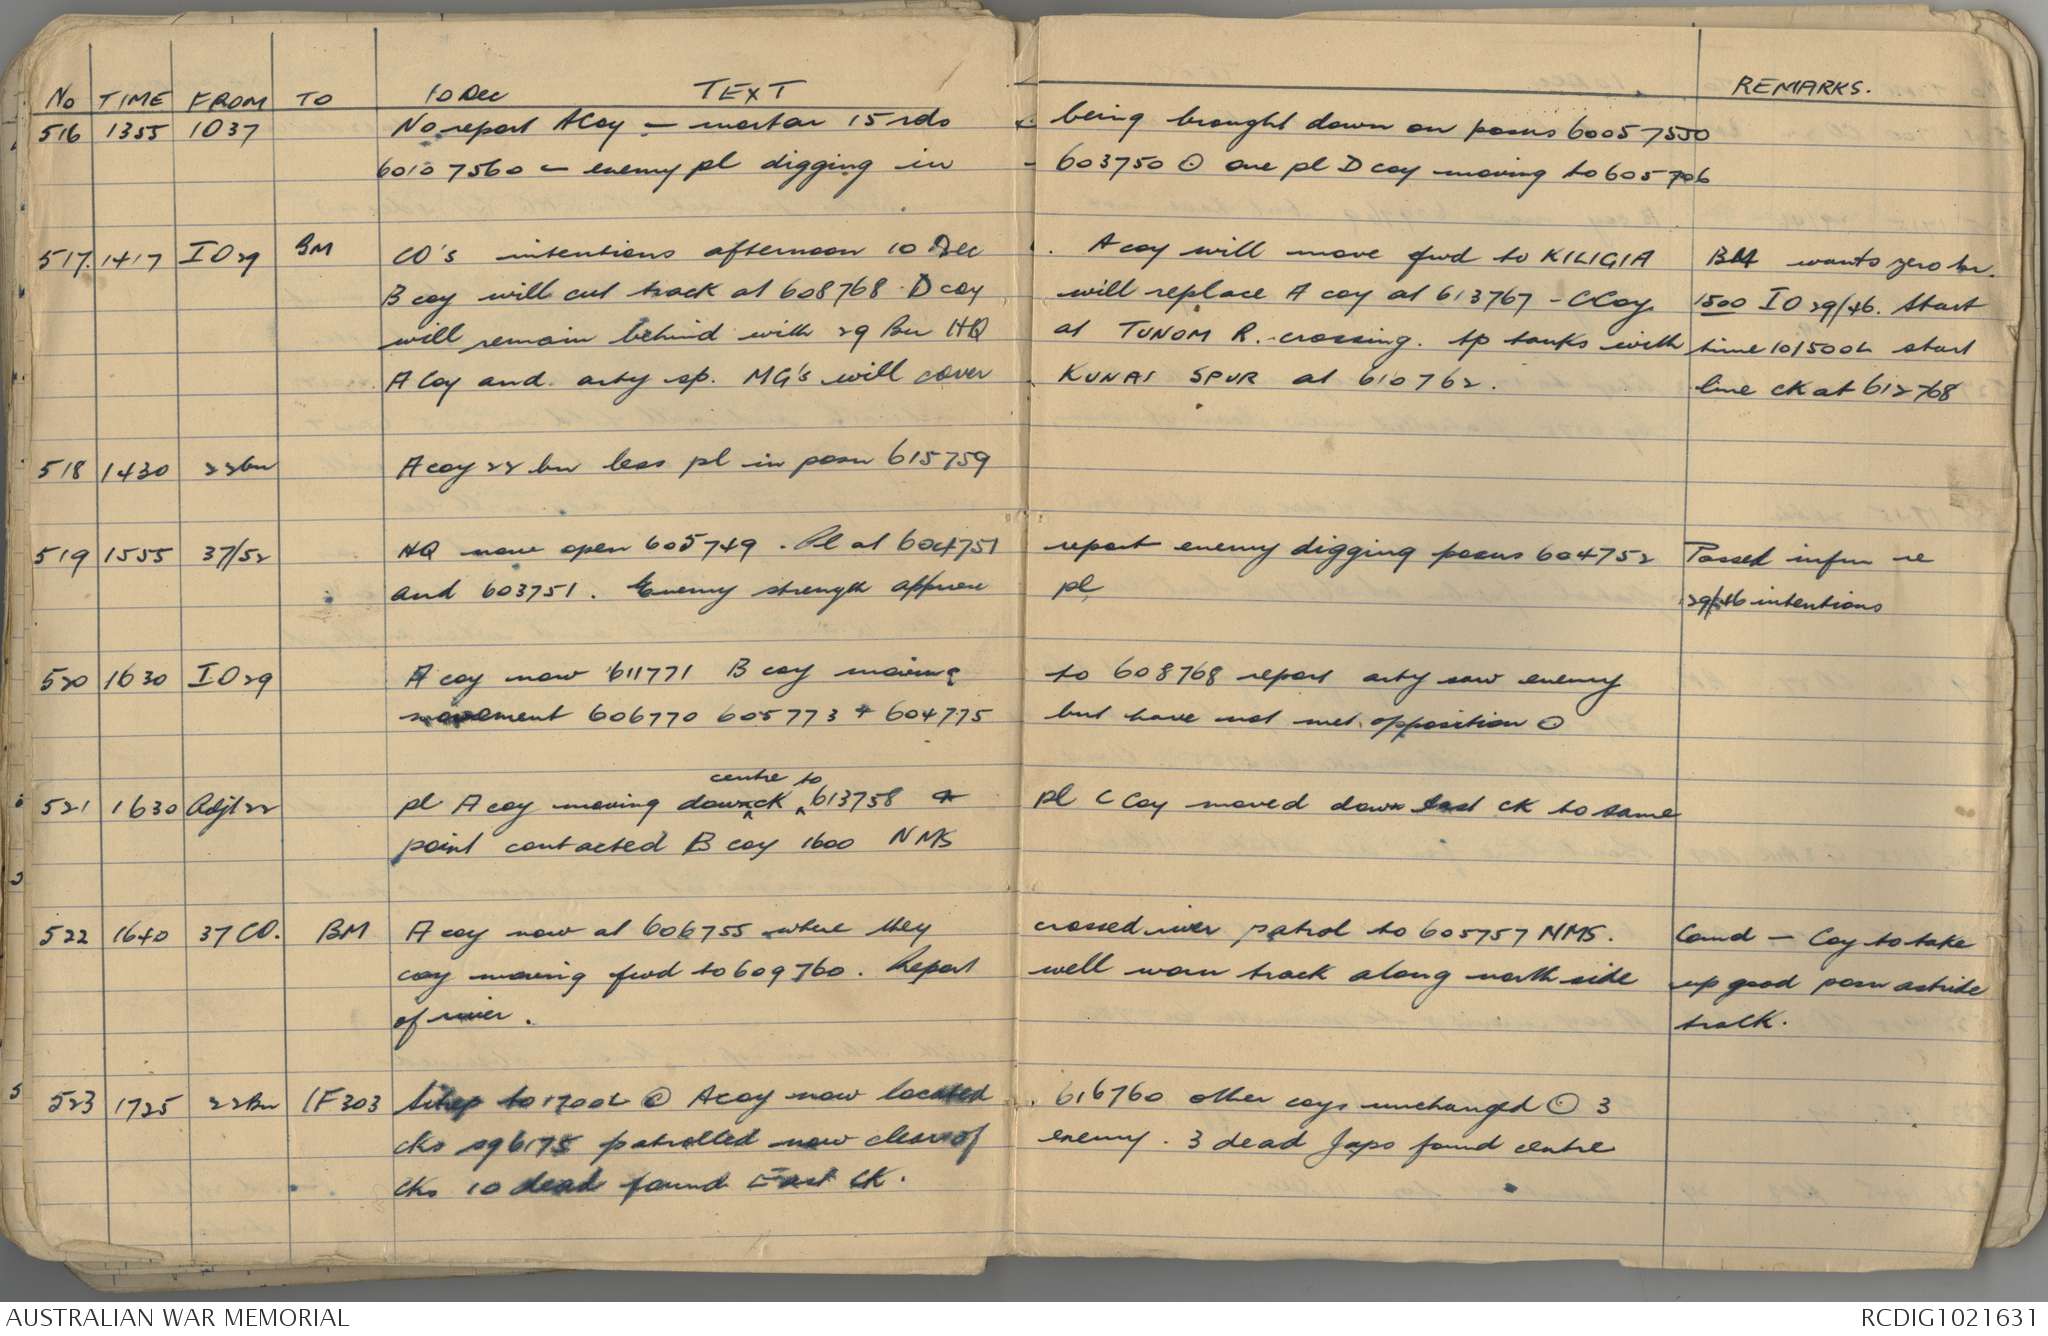 No TIME FROM TO 10 Dec TEXT REMARKS.
516 1355 IO37 No report A Coy – mortar 15 rds being brought down on posns 60057550
60107560 – enemy pl digging in 603750 ⊙ one pl D coy moving to 605706
517. 1417 IO 29 BM CO's intentions afternoon 10 Dec . A coy will move fwd to KILIGIA BM wants zero hr.
B coy will cut track at 608768 . D coy will replace A coy at 613767 – C Coy 1500 IO 29/46. Start
will remain behind with 29 Bn HQ at TUNOM R. crossing. tp tanks with time 101500L start
A Coy and arty sp. MG's will cover KUNAI SPUR at 610762. line ck at 612768
518 1430 22bn A coy 22 bn less pl in posn 615759
519 1555 37/52 HQ now open 605749 . Pl at 604751 report enemy digging posns 604752 Passed infm re
and 603751. Enemy strength approx pl 29/46 intentions
520 1630 IO 29 A coy now 611771 B coy moving to 608768 report arty saw enemy
movement 606770 605773 + 604775 but have not met opposition ⊙
521 1630 Adjt 22 pl A coy moving down centre ck to 613758 + pl C Coy moved down East ck to same
point contacted B coy 1600 NMS
522 1640 37 CO. BM A coy now at 606755 where they crossed river patrol to 605757 NMS. Comd – Coy to take
coy moving fwd to 609760. Report well worn track along north side up good posn astride
of river. track.
523 1725 22Bn IF303 Sitrep to 1700L ⊙ A coy now located . 616760 other coys unchanged ⊙ 3
cks sq 6175 patrolled now clear of enemy. 3 dead Japs found centre
Ck. 10 dead found East CK.
AUSTRALIAN WAR MEMORIAL RCDIG1021631